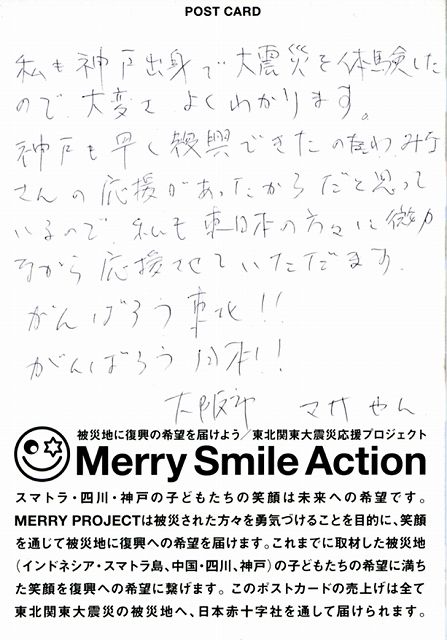 POST CARD
私も神戸出身で大震災を体験した
ので大変さよくわかります。
神戸も早く復興できたのはみな
さんの応援があったからだと思って
いるので、私も東日本の方々に微力
ながら応援させていただきます。
がんばろう東北!!
がんばろう日本!!
大阪市 マサやん
被災地に復興の希望を届けよう/東北関東大震災応援プロジェクト
Merry Smile Action
スマトラ・四川・神戸の子どもたちの笑顔は未来への希望です。
MERRY PROJECTは被災された方々を勇気づけることを目的に、笑顔
を通じて被災地に復興への希望を届けます。これまでに取材した被災地
(インドネシア・スマトラ島、中国・四川、神戸)の子どもたちの希望に満ち
た笑顔を復興への希望に繋げます。このポストカードの売上げは全て
東北関東大震災の被災地へ、日本赤十字社を通して届けられます。